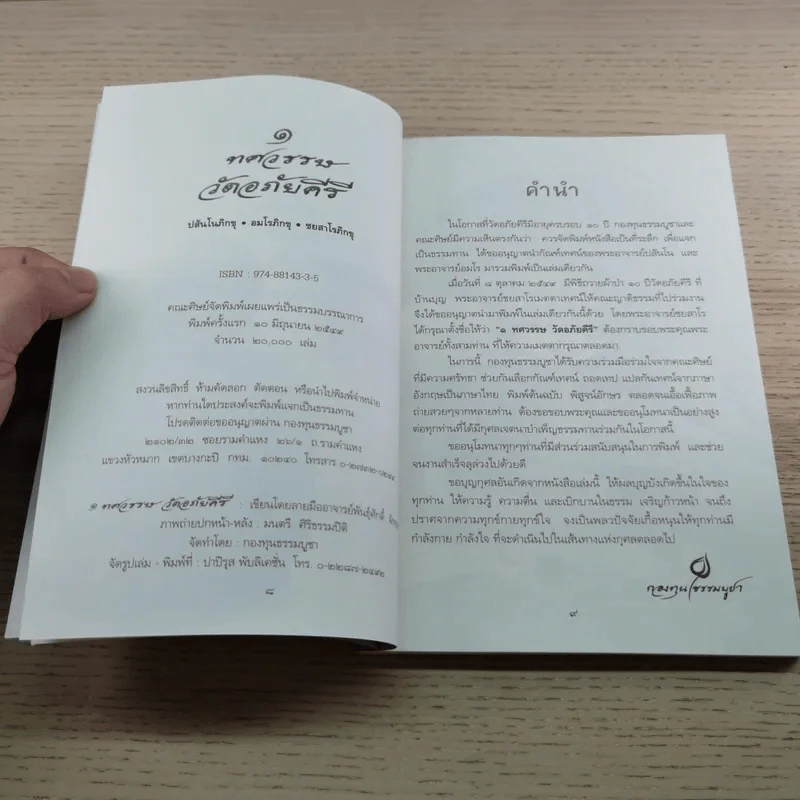 ๑
ทศวรรษ
วัดอภัยคีรี
ปสันโนภิกขุ • อมโรภิกขุ • ชยสาโรภิกขุ
ISBN : 974-88143-3-5
คณะศิษย์จัดพิมพ์เผยแพร่เป็นธรรมบรรณาการ
พิมพ์ครั้งแรก ๑๐ มิถุนายน ๒๕๔๙
จำนวน ๒๐,๐๐๐ เล่ม
สงวนลิขสิทธิ์ ห้ามคัดลอก ตัดตอน หรือนำไปพิมพ์จำหน่าย
หากท่านใดประสงค์จะพิมพ์แจกเป็นธรรมทาน
โปรดติดต่อขออนุญาตผ่าน กองทุนธรรมบูชา
๒๑๐๒/๓๒ ซอยรามคำแหง ๒๖/๑ ถ.รามคำแหง
แขวงหัวหมาก เขตบางกะปิ กทม. ๑๐๒๔๐ โทรสาร
๑ ทศวรรษ วัดอภัยคีรี : เขียนโดยลายมืออาจารย์พันธุ์ศักดิ์
ภาพถ่ายปกหน้า-หลัง : มนตรี ศิริธรรมปิติ
จัดทำโดย : กองทุนธรรมบูชา
จัดรูปเล่ม - พิมพ์ที่ : ปาปิรุส พับลิเคชั่น โทร. ๐-๒๒๘๗-๒๔๙๒
๘
คำนำ
ในโอกาสที่วัดอภัยคีรีมีอายุครบรอบ ๑๐ ปี กองทุนธรรมบูชาและ
คณะศิษย์มีความเห็นตรงกันว่า ควรจัดพิมพ์หนังสือเป็นที่ระลึก เพื่อแจก
เป็นธรรมทาน ได้ขออนุญาตนำกัณฑ์เทศน์ของพระอาจารย์ปสันโน และ
พระอาจารย์อมโร มารวมพิมพ์เป็นเล่มเดียวกัน
เมื่อวันที่ ๘ ตุลาคม ๒๕๔๙ มีพิธีถวายผ้าป่า ๑๐ ปีวัดอภัยคีรี ที่
บ้านบุญ พระอาจารย์ชยสาโรเมตตาเทศน์ให้คณะญาติธรรมที่ไปร่วมงาน
จึงได้ขออนุญาตนำมาพิมพ์ในเล่มเดียวกันนี้ด้วย โดยพระอาจารย์ชยสาโร
ได้กรุณาตั้งชื่อให้ว่า "๑ ทศวรรษ วัดอภัยคีรี" ต้องกราบขอบพระคุณพระ
อาจารย์ทั้งสามท่าน ที่ให้ความเมตตากรุณาตลอดมา
ในการนี้ กองทุนธรรมบูชาได้รับความร่วมมือร่วมใจจากคณะศิษย์
ที่มีความศรัทธา ช่วยกันเลือกกัณฑ์เทศน์ ถอดเทป แปลกันเทศน์จากภาษา
อังกฤษเป็นภาษาไทย พิมพ์ต้นฉบับ พิสูจน์อักษร ตลอดจนเอื้อเฟื้อภาพ
ถ่ายสวยๆจากหลายท่าน ต้องขอขอบพระคุณและขออนุโมทนาเป็นอย่างสูง
ต่อทุกท่านที่ได้มีกุศลเจตนาบำเพ็ญธรรมทานร่วมกันในโอกาสนี้
ขออนุโมทนาทุกๆท่านที่มีส่วนร่วมสนับสนุนในการพิมพ์ และช่วย
จนงานสำเร็จลุล่วงไปด้วยดี
ขอบุญกุศลอันเกิดจากหนังสือเล่มนี้ ให้ผลบุญบังเกิดขึ้นในใจของ
ทุกท่าน ให้ความรู้ ความตื่น และเบิกบานในธรรม เจริญก้าวหน้า จนถึง
ปราศจากความทุกข์กายทุกข์ใจ จงเป็นพลวปัจจัยเกื้อหนุนให้ทุกท่านมี
กำลังกาย กำลังใจ ที่จะดำเนินไปในเส้นทางแห่งกุศลตลอดไป
กองทุนธรรมบูชา
๙